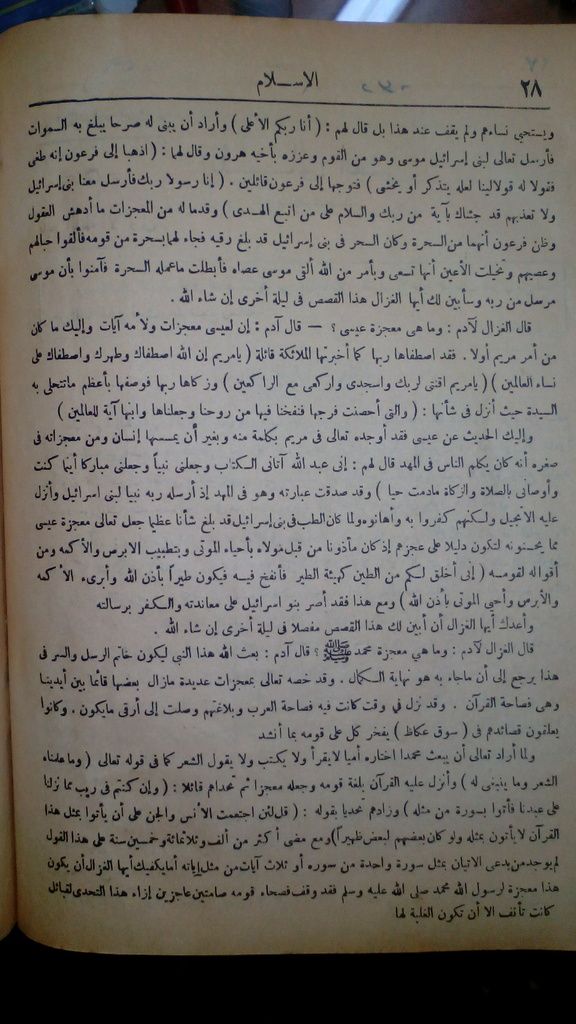 ٢٨
الإســلام
ويستحي نساءهم ولم يقف عند هذا بل قال لهم : ( أنا ربكم الأعلى ) وأراد أن يبنى له صرحا يبلغ به السموات
فأرسل تعالى لبنى إسرائيل موسى وهو من القوم وعززه بأخيه هرون وقال لهما : ( اذهبا إلى فرعون إنه طغى
فقولا له قولا لينا لعله يتذكر أو يخشى ) فتوجها إلى فرعون قائلين . ( إنا رسولا ربك فأرسل معنا بنى إسرائيل
ولا تعذبهم قد جئناك بآية من ربك والسلام على من اتبع الهـدى ) وقدما له من المعجزات ما أدهش العقول
وظن فرعون أنهما من السحرة وكان السحر فى بنى إسرائيل قد بلغ رقيه فجاء لهما بسحرة من قومه فألقوا حبالهم
وعصيهم وتخيلت الأعين أنها تسعى وبأمر من الله ألقى موسى عصاه فأبطلت ماعمله السحرة فآمنوا بأن موسى
مرسل من ربه وسأبين لك أيها الغزال هذا القصص فى ليلة أخرى إن شاء الله .
قال الغزال لآدم : وما هى معجزة عيسى ؟ — قال آدم : إن لعيسى معجزات ولأمه آيات وإليك ما كان
من أمر مريم أولا . فقد اصطفاها ربها كما أخبرتها الملائكة قائلة ( يامريم إن الله اصطفاك وطهرك واصطفاك على
نساء العالمين ) ( يامريم اقنتى لربك واسجدى واركعى مع الراكعين ) وزكاها ربها فوصفها بأعظم ماتتحلى به
السيدة حيث أنزل فى شأنها : ( والتى أحصنت فرجها فنفخنا فيها من روحنا وجعلناها وابنها آية للعالمين )
وإليك الحديث عن عيسى فقد أوجده تعالى فى مريم بكلمة منه وبغير أن يمسسها إنسان ومن معجزاته فى
صغره أنه كان يكلم الناس فى المهد قال لهم : إنى عبد الله آتانى الكتاب وجعلنى نبياً وجعلنى مباركا أينما كنت
وأوصانى بالصلاة والزكاة مادمت حيا ) وقد صدقت عبارته وهو فى المهد إذ أرسله ربه نبيا لبنى اسرائيل وأنزل
عليه الانجيل ولكنهم كفروا به وأهانوه ولما كان الطب فى بنى إسرائيل قد بلغ شأنا عظيما جعل تعالى معجزة عيسى
مما يحسنونه لتكون دليلا على عجزهم إذ كان مأذونا من قبل مولاه بأحياء الموتى وبتطبيب الابرص والأكمه ومن
أقواله لقومـه ( إنى أخلق لكم من الطين كهيئة الطير فأنفخ فيـه فيكون طيراً بأذن الله وأبرىء الأكمه
والأبرص وأحي الموتى بأذن الله ) ومع هذا فقد أصر بنو اسرائيل على معاندته والكفر برسالته
وأعدك أيها الغزال أن أبين لك هذا القصص مفصلا فى ليلة أخرى إن شاء الله .
قال الغزال لآدم : وما هى معجزة محمد ﷺ ؟ قال آدم : بعث الله هذا النبى ليكون خاتم الرسل والسر فى
هذا يرجع إلى أن ماجاء به هو نهاية الكمال . وقد خصه تعالى بمعجزات عديدة مازال بعضها قائما بين أيدينـا
وهى فصاحة القرآن . وقد نزل فى وقت كانت فيه فصاحة العرب وبلاغتهم وصلت إلى أرقى مايكون . وكانوا
يعلقون قصائدهم فى ( سوق عكاظ ) يفخر كل على قومه بما أنشد
ولما أراد تعالى أن يبعث محمدا اختاره أميا لايقرأ ولا يكتب ولا يقول الشعر كما فى قوله تعالى ( وما علمناه
الشعر وما ينبغى له ) وأنزل عليه القرآن بلغة قومه وجعله معجزا ثم تحداهم قائلا : ( وإن كنتم فى ريب مما نزلنا
على عبدنا فأتوا بسورة من مثله ) وزادهم تحديا بقوله : ( قل لئن اجتمعت الأنس والجن على أن يأتوا بمثل هذا
القرآن لايأتون بمثله ولو كان بعضهم لبعض ظهيرا ) ومع مضى أكثر من ألف وثلاثمائة وخمسين سنة على هذا القول
لم يوجد من يدعى الاتيان بمثل سورة واحدة من سوره أو ثلاث آيات من مثل إياته أمايكفيك أيها الغزال أن يكون
هذا معجزة لرسول الله محمد صلى الله عليه وسلم فقد وقف فصحاء قومه صامتين عاجزين إزاء هذا التحدى لقبائل
كانت تأنف الا أن تكون الغلبة لها